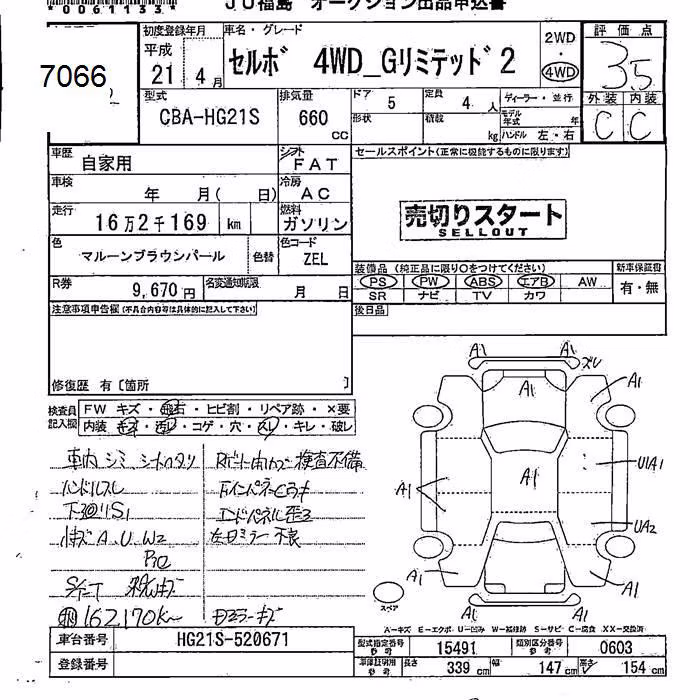 *0061133*
JU福島 オークション出品申込書
7066
初度登録年月
平成
21 4月
車名・グレード
セルボ 4WD_Gリミテッド2
2WD
・
4WD
評価点
3.5
型式
CBA-HG21S
排気量
660
CC
ドア
5
定員
4人
ディーラー・並行
形状
積載
kg
モデル年式
年
ハンドル 左・右
外装 内装
C C
車歴
自家用
シフト
FAT
セールスポイント(正常に機能するものに限ります)
車検
年 月( 日)
冷房
AC
走行
16万2千169 km
燃料
ガソリン
売切りスタート
SELLOUT
色
マルーンブラウンパール
色替
色コード
ZEL
R券
9,670円
名変通知期限
月 日
装備品(純正品に限り○をつけてください)
新車保証書
PS PW ABS エアB AW
有・無
SR ナビ TV カワ
注意事項申告欄(不具合内容等は具体的に記入して下さい)
後日品
修復歴 有〔箇所 〕
検査員記入欄
FW キズ・飛石・ヒビ割・リペア跡・×要
内装 キズ・汚レ・コゲ・穴・スレ・キレ・破レ
車内シミ
検査不備
ハンドルスレ
下廻りS1
エンドパネル歪ミ
小キズA、U、W2
左ドミラー不良
162,170K
ドミラーキズ
A1
A1
ズレ
A1
A1
A1
A1
U1A1
UA2
A1
A1
A1
スペア
A-キズ E-エクボ U-凹み W-補修跡 S-サビ C-腐食 XX-交換済
車台番号
HG21S-520671
登録番号
型式指定番号
参考
15491
類別区分番号
参考
0603
車庫証明用
参考
長さ
339cm
幅
147cm
高さ
154cm